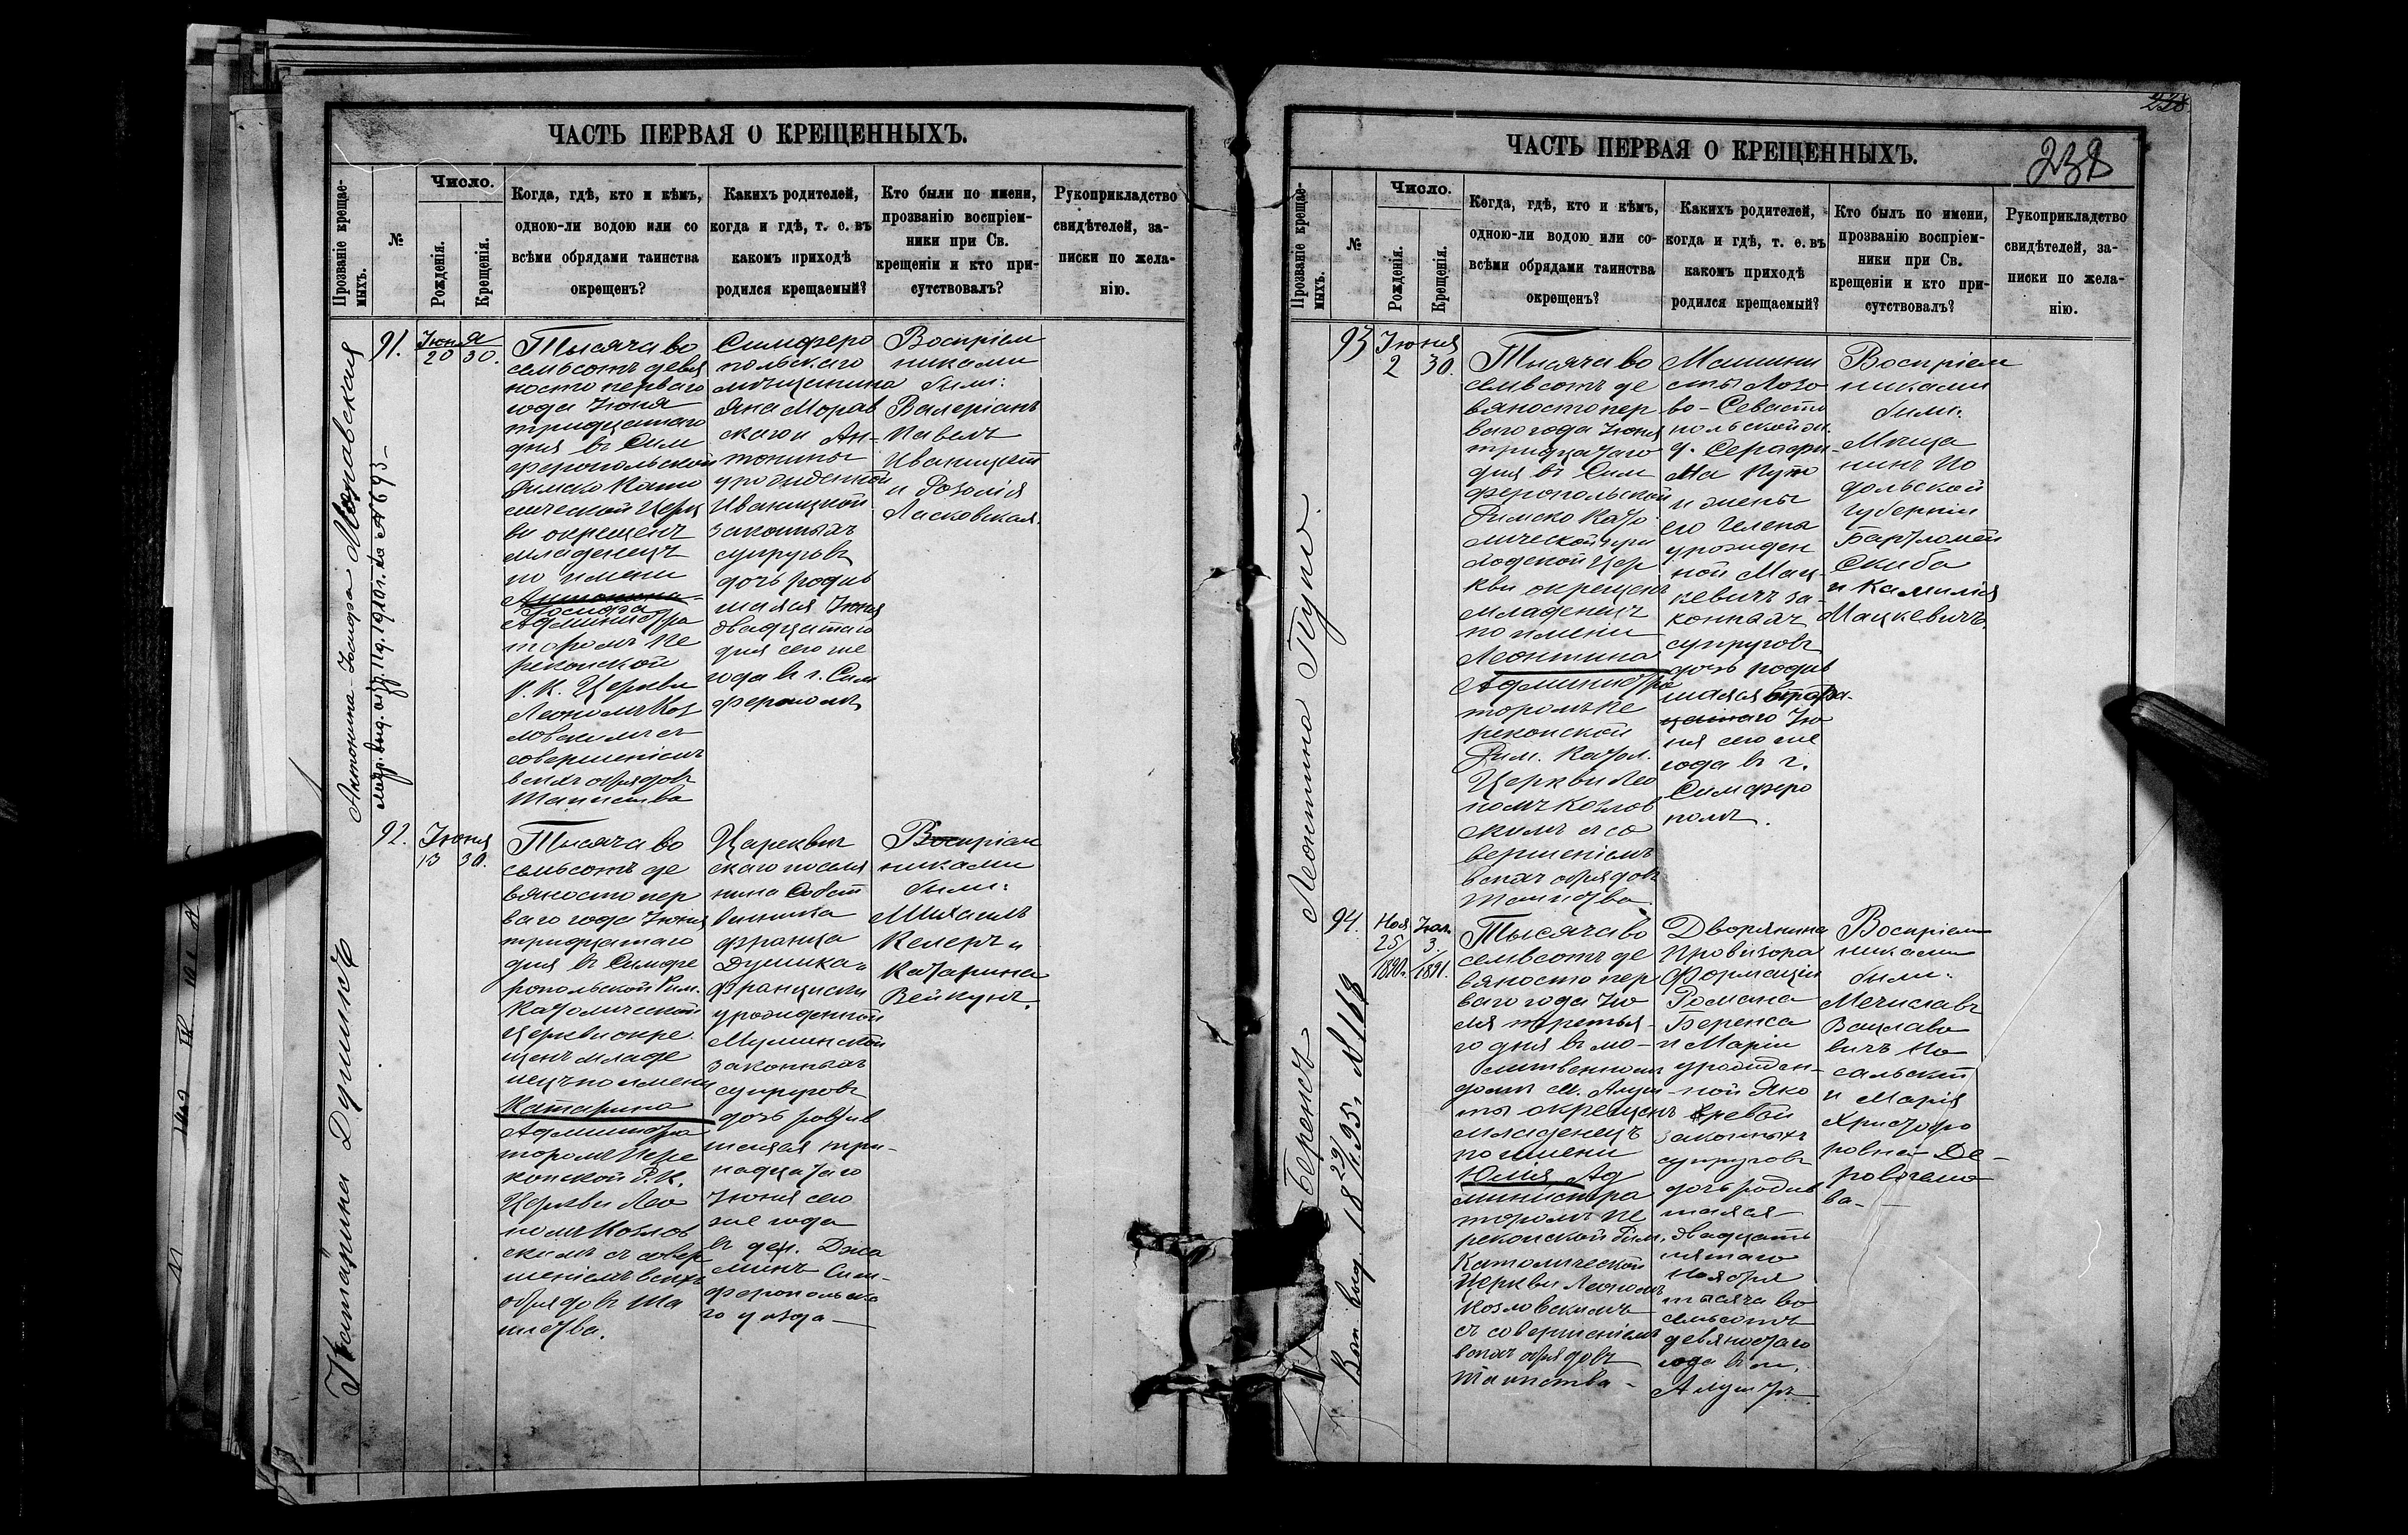 ЧАСТЬ ПЕРВАЯ О КРЕЩЕННЫХЪ.
Прозваніе крещае-
мыхъ.
№
Число.
Рожденія.
Крещенія.
Когда, гдѣ, кто и кѣмъ,
одною-ли водою или со
всѣми обрядами таинства
окрещенъ?
Какихъ родителей,
когда и гдѣ, т. е. въ
какомъ приходѣ
родился крещаемый?
Кто были по имени,
прозванію воспріем-
ники при Св.
крещеніи и кто при-
сутствовалъ?
Рукоприкладство
свидѣтелей, за-
писки по жела-
нію.
Антонина Іосифа Моравская
91.
Іюня
20 30.
Тысяча во
семьсотъ девя
носто перваго
года Іюня
тридцатаго
дня въ Сим
феропольской
Римско Като
лической Церк
ви окрещенъ
младенецъ
по имени
Антонина
Іосифа
Администра
торомъ Пе
рекопской
Р. К. Церкви
Леономъ Коз
ловскимъ съ
совершеніемъ
всѣхъ обрядовъ
Таинства
Симферо
польскаго
мѣщанина
Яна Морав
скаго и Ан-
тонины
урожденной
Иваницкой
законныхъ
супруговъ
дочь родив
шаяся Іюня
двадцатаго
дня сего же
года въ г. Сим
ферополѣ
Воспріем
никами
были:
Валеріанъ
Павелъ
Иваницкій
и Розалія
Ласковская.
Катарина Душикъ
92.
Іюня
13 30.
Тысяча во
семьсотъ де
вяносто пер
ваго года Іюня
тридцатаго
дня въ Симфе
ропольской Рим.
Католической
Церкви окре
щенъ младе
нецъ по имени
Катарина
Администра
торомъ Пере
копской Р.К.
Церкви Лео
номъ Козлов
скимъ съ совер
шеніемъ всѣхъ
обрядовъ Та
инства.
Цареквич
скаго поселя
нина Собст
венника
Франца
Душика и
Франциски
урожденной
Мушинской
законныхъ
супруговъ
дочь родив
шаяся три-
надцатаго
Іюня сего
же года
въ дер. Джа
минъ Сим-
феропольска
го уѣзда
Воспріем
никами
были:
Михаилъ
Келеръ и
Катарина
Вейкунъ.
ЧАСТЬ ПЕРВАЯ О КРЕЩЕННЫХЪ.
238
Прозваніе крещае-
мыхъ.
№
Число.
Рожденія.
Крещенія.
Когда, гдѣ, кто и кѣмъ,
одною-ли водою или со-
всѣми обрядами таинства
окрещенъ?
Какихъ родителей,
когда и гдѣ, т. е. въ
какомъ приходѣ
родился крещаемый?
Кто былъ по имени,
прозванію воспріем-
ники при Св.
крещеніи и кто при-
сутствовалъ?
Рукоприкладство
свидѣтелей, за-
писки по жела-
нію.
Леонтина Путо.
93
Іюня
2 30.
Тысяча во
семьсотъ де
вяносто пер
ваго года Іюня
тридцатаго
дня въ Сим
феропольской
Римско Като
лической
Церкви окрещенъ
младенецъ
по имени
Леонтина
Администра
торомъ Пе
рекопской
Рим. Катол.
Церкви Лео
номъ Козлов
скимъ съ со
вершеніемъ
всѣхъ обрядовъ
Таинства.
Машини
сты Лозо
во-Севасто
польской ж.
д. Серафи-
ма Путо
и жены
его Гелена
урожден
ной Мац-
кевичъ за-
конныхъ
супруговъ
дочь родив
шаяся втора-
го Ію
ня сего же
года въ г.
Симферо
полѣ.
Воспріем
никами
были:
Мѣща
нинъ По
дольской
Губерніи
Бартломей
Скиба
и Камилія
Мацкевичъ.
Беренсъ
Коп. выд. 18 29/I 95. № 168
94.
Ноя. Іюл.
25 3.
1890. 1891.
Тысяча во
семьсотъ де
вяносто пер
ваго года Ію
ля третья-
го дня въ мо-
литвенномъ
домѣ м. Алуш
ты окрещенъ
младенецъ
по имени
Юлія Ад
министра
торомъ Пе
рекопской Рим.
Католической
Церкви Леономъ
Козловскимъ
съ совершеніемъ
всѣхъ обрядовъ
Таинства-
Дворянина
Провизора
Формаціи
Романа
Беренса
и Маріи
урожден-
ной Яко
влевой
законныхъ
супруговъ
дочь родив
шаяся
двадцать
пятаго
Ноября
тысяча во
семьсотъ
девяностаго
года въ м.
Алуштѣ
Воспріем
никами
были:
Мечиславъ
Вацлаво
вичъ Но
сальскій
и Марія
Христофо
ровна Де-